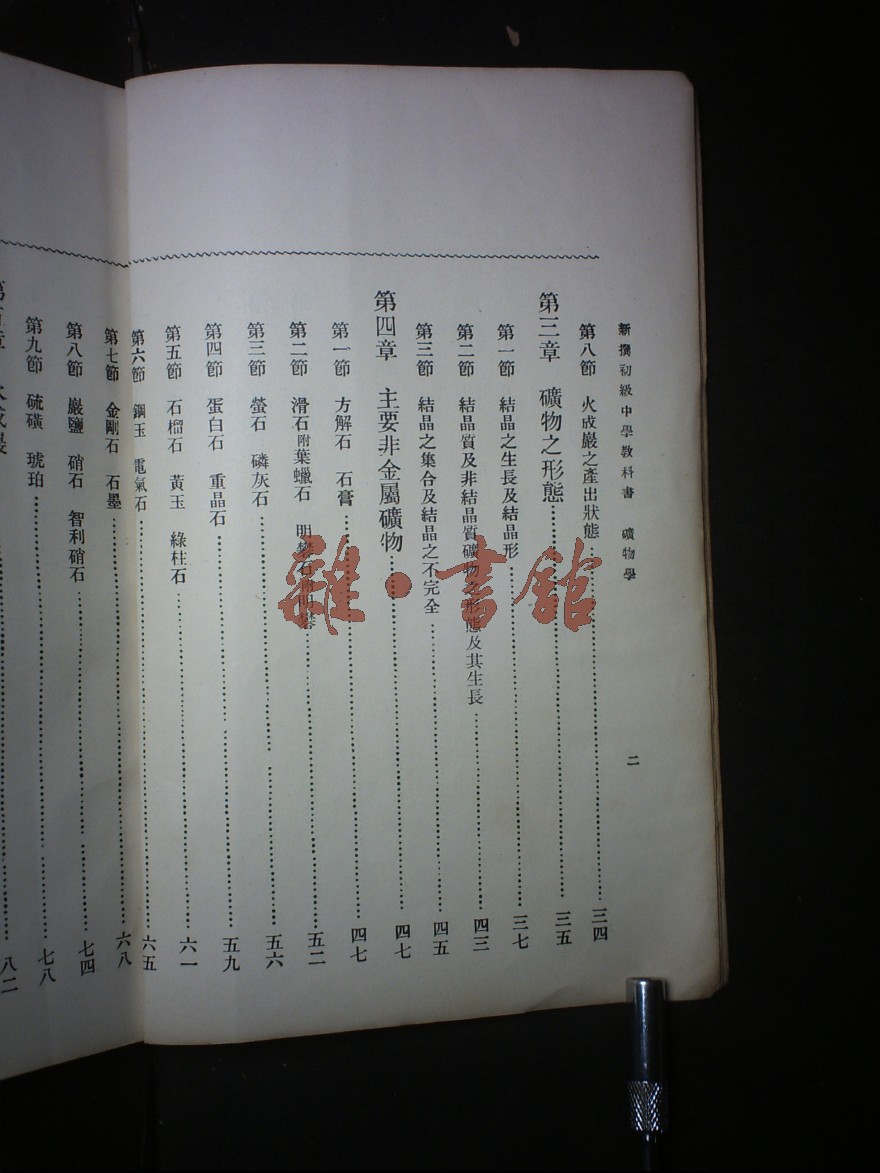 新撰初級中學教科書　礦物學　二
第八節　火成巖之產出狀態……三四
第三章　礦物之形態……三五
第一節　結晶之生長及結晶形……三七
第二節　結晶質及非結晶質礦物之形態及其生長……四三
第三節　結晶之集合及結晶之不完全……四五
第四章　主要非金屬礦物……四七
第一節　方解石　石膏……四七
第二節　滑石附葉蠟石　明礬石附明礬……五二
第三節　螢石　磷灰石……五六
第四節　蛋白石　重晶石……五九
第五節　石榴石　黃玉　綠柱石……六一
第六節　鋼玉　電氣石……六五
第七節　金剛石　石墨……六八
第八節　巖鹽　硝石　智利硝石……七四
第九節　硫磺　琥珀……七八
章……八二
雜·書館